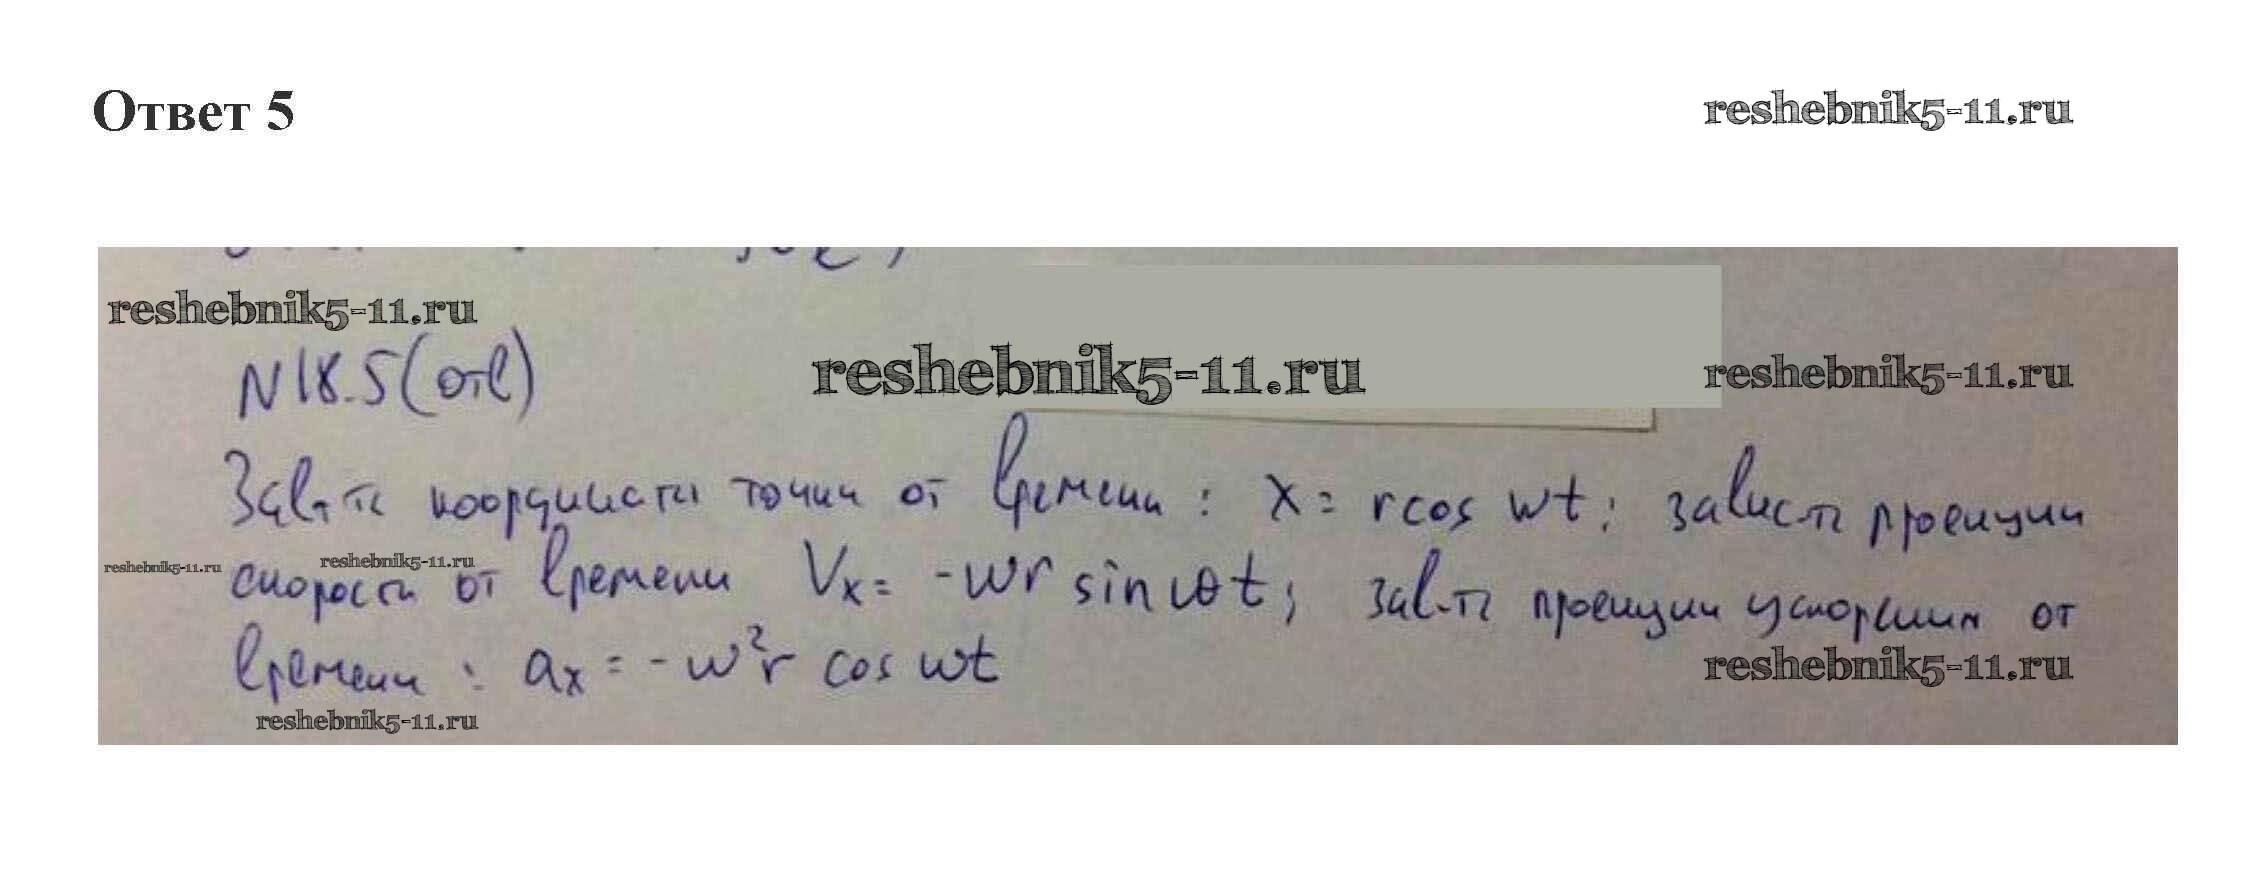 Ответ 5
reshebnik5-11.ru
reshebnik5-11.ru
N18.5(отв)
reshebnik5-11.ru
reshebnik5-11.ru
Зав-ть координаты точки от времени: x = r cos wt; завис-ть проекции
reshebnik5-11.ru
reshebnik5-11.ru
скорости от времени Vx = -wr sin wt; зав-ть проекции ускорения от
времени: ax = -w²r cos wt
reshebnik5-11.ru
reshebnik5-11.ru